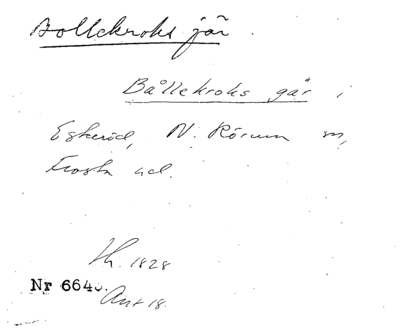 Bollekroks jär.
Bållekroks går i
Eskeröd, N. Rörum sn,
Frosta hd.
Th. 1828
Nr 6640.
Ant 18.